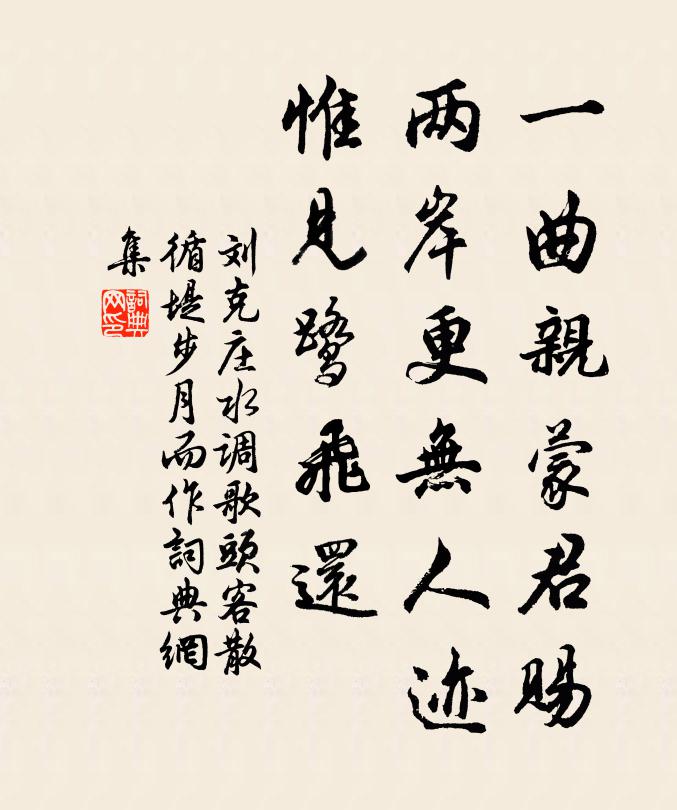 一曲親蒙君賜
两岸更無人迹
惟見鹭飛還
刘克庄水调歌頭客散
循堤步月而作詞典網
集
詞典
网印